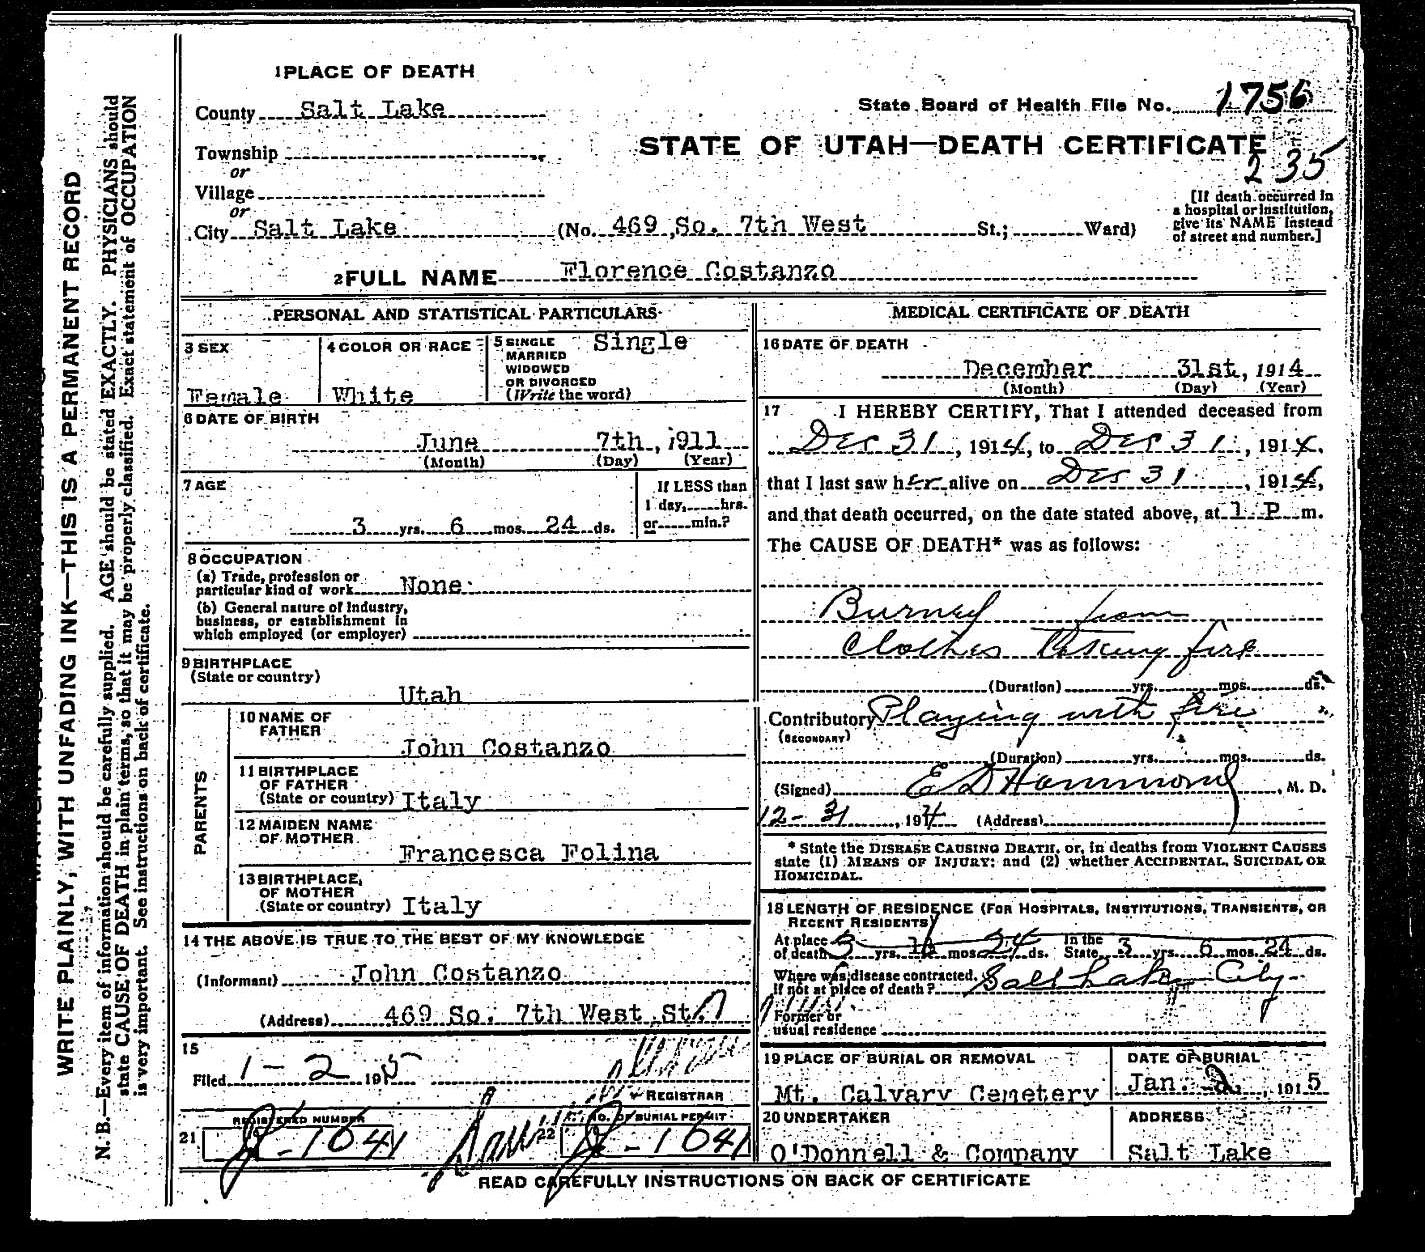 1 PLACE OF DEATH
County Salt Lake
State Board of Health File No. 1756
STATE OF UTAH—DEATH CERTIFICATE
235
Township
or
Village
or
City Salt Lake (No. 469 So. 7th West St.; Ward)
[If death occurred in
a hospital or institution,
give its NAME instead
of street and number.]
2 FULL NAME Florence Costanzo
PERSONAL AND STATISTICAL PARTICULARS
3 SEX
Female
4 COLOR OR RACE
White
5 SINGLE
MARRIED
WIDOWED
OR DIVORCED
(Write the word)
Single
6 DATE OF BIRTH
June 7th, 1911
(Month) (Day) (Year)
7 AGE
3 yrs. 6 mos. 24 ds.
If LESS than
1 day, hrs.
or min.?
8 OCCUPATION
(a) Trade, profession or
particular kind of work None
(b) General nature of industry,
business, or establishment in
which employed (or employer)
9 BIRTHPLACE
(State or country)
Utah
PARENTS
10 NAME OF
FATHER
John Costanzo
11 BIRTHPLACE
OF FATHER
(State or country) Italy
12 MAIDEN NAME
OF MOTHER
Francesca Folina
13 BIRTHPLACE
OF MOTHER
(State or country) Italy
14 THE ABOVE IS TRUE TO THE BEST OF MY KNOWLEDGE
(Informant) John Costanzo
(Address) 469 So. 7th West St.
15
Filed 1-2 1915
REGISTRAR
REGISTERED NUMBER
21
NO. OF BURIAL PERMIT
22
MEDICAL CERTIFICATE OF DEATH
16 DATE OF DEATH
December 31st, 1914
(Month) (Day) (Year)
17 I HEREBY CERTIFY, That I attended deceased from
Dec 31, 1914, to Dec 31, 1914,
that I last saw her alive on Dec 31, 1914,
and that death occurred, on the date stated above, at 1 P m.
The CAUSE OF DEATH* was as follows:
Burned from
Clothes fire
(Duration) yrs. mos. ds.
Contributory Playing with fire
(SECONDARY)
(Duration) yrs. mos. ds.
(Signed) E D Hammond, M. D.
12-31, 1914 (Address)
* State the DISEASE CAUSING DEATH, or, in deaths from VIOLENT CAUSES
state (1) MEANS OF INJURY; and (2) whether ACCIDENTAL, SUICIDAL OR
HOMICIDAL.
18 LENGTH OF RESIDENCE (FOR HOSPITALS, INSTITUTIONS, TRANSIENTS, OR
RECENT RESIDENTS)
At place
of death 3 yrs. mos. 24 ds. In the
State 3 yrs. 6 mos. 24 ds.
Where was disease contracted,
If not at place of death? Salt Lake City
Former or
usual residence
19 PLACE OF BURIAL OR REMOVAL
Mt. Calvary Cemetery
DATE OF BURIAL
Jan. 2, 1915
20 UNDERTAKER
O'Donnell & Company
ADDRESS
Salt Lake
READ CAREFULLY INSTRUCTIONS ON BACK OF CERTIFICATE
WRITE PLAINLY, WITH UNFADING INK—THIS IS A PERMANENT RECORD
N. B.—Every item of information should be carefully supplied. AGE should be stated EXACTLY. PHYSICIANS should
state CAUSE OF DEATH in plain terms, so that it may be properly classified. Exact statement of OCCUPATION
is very important. See instructions on back of certificate.